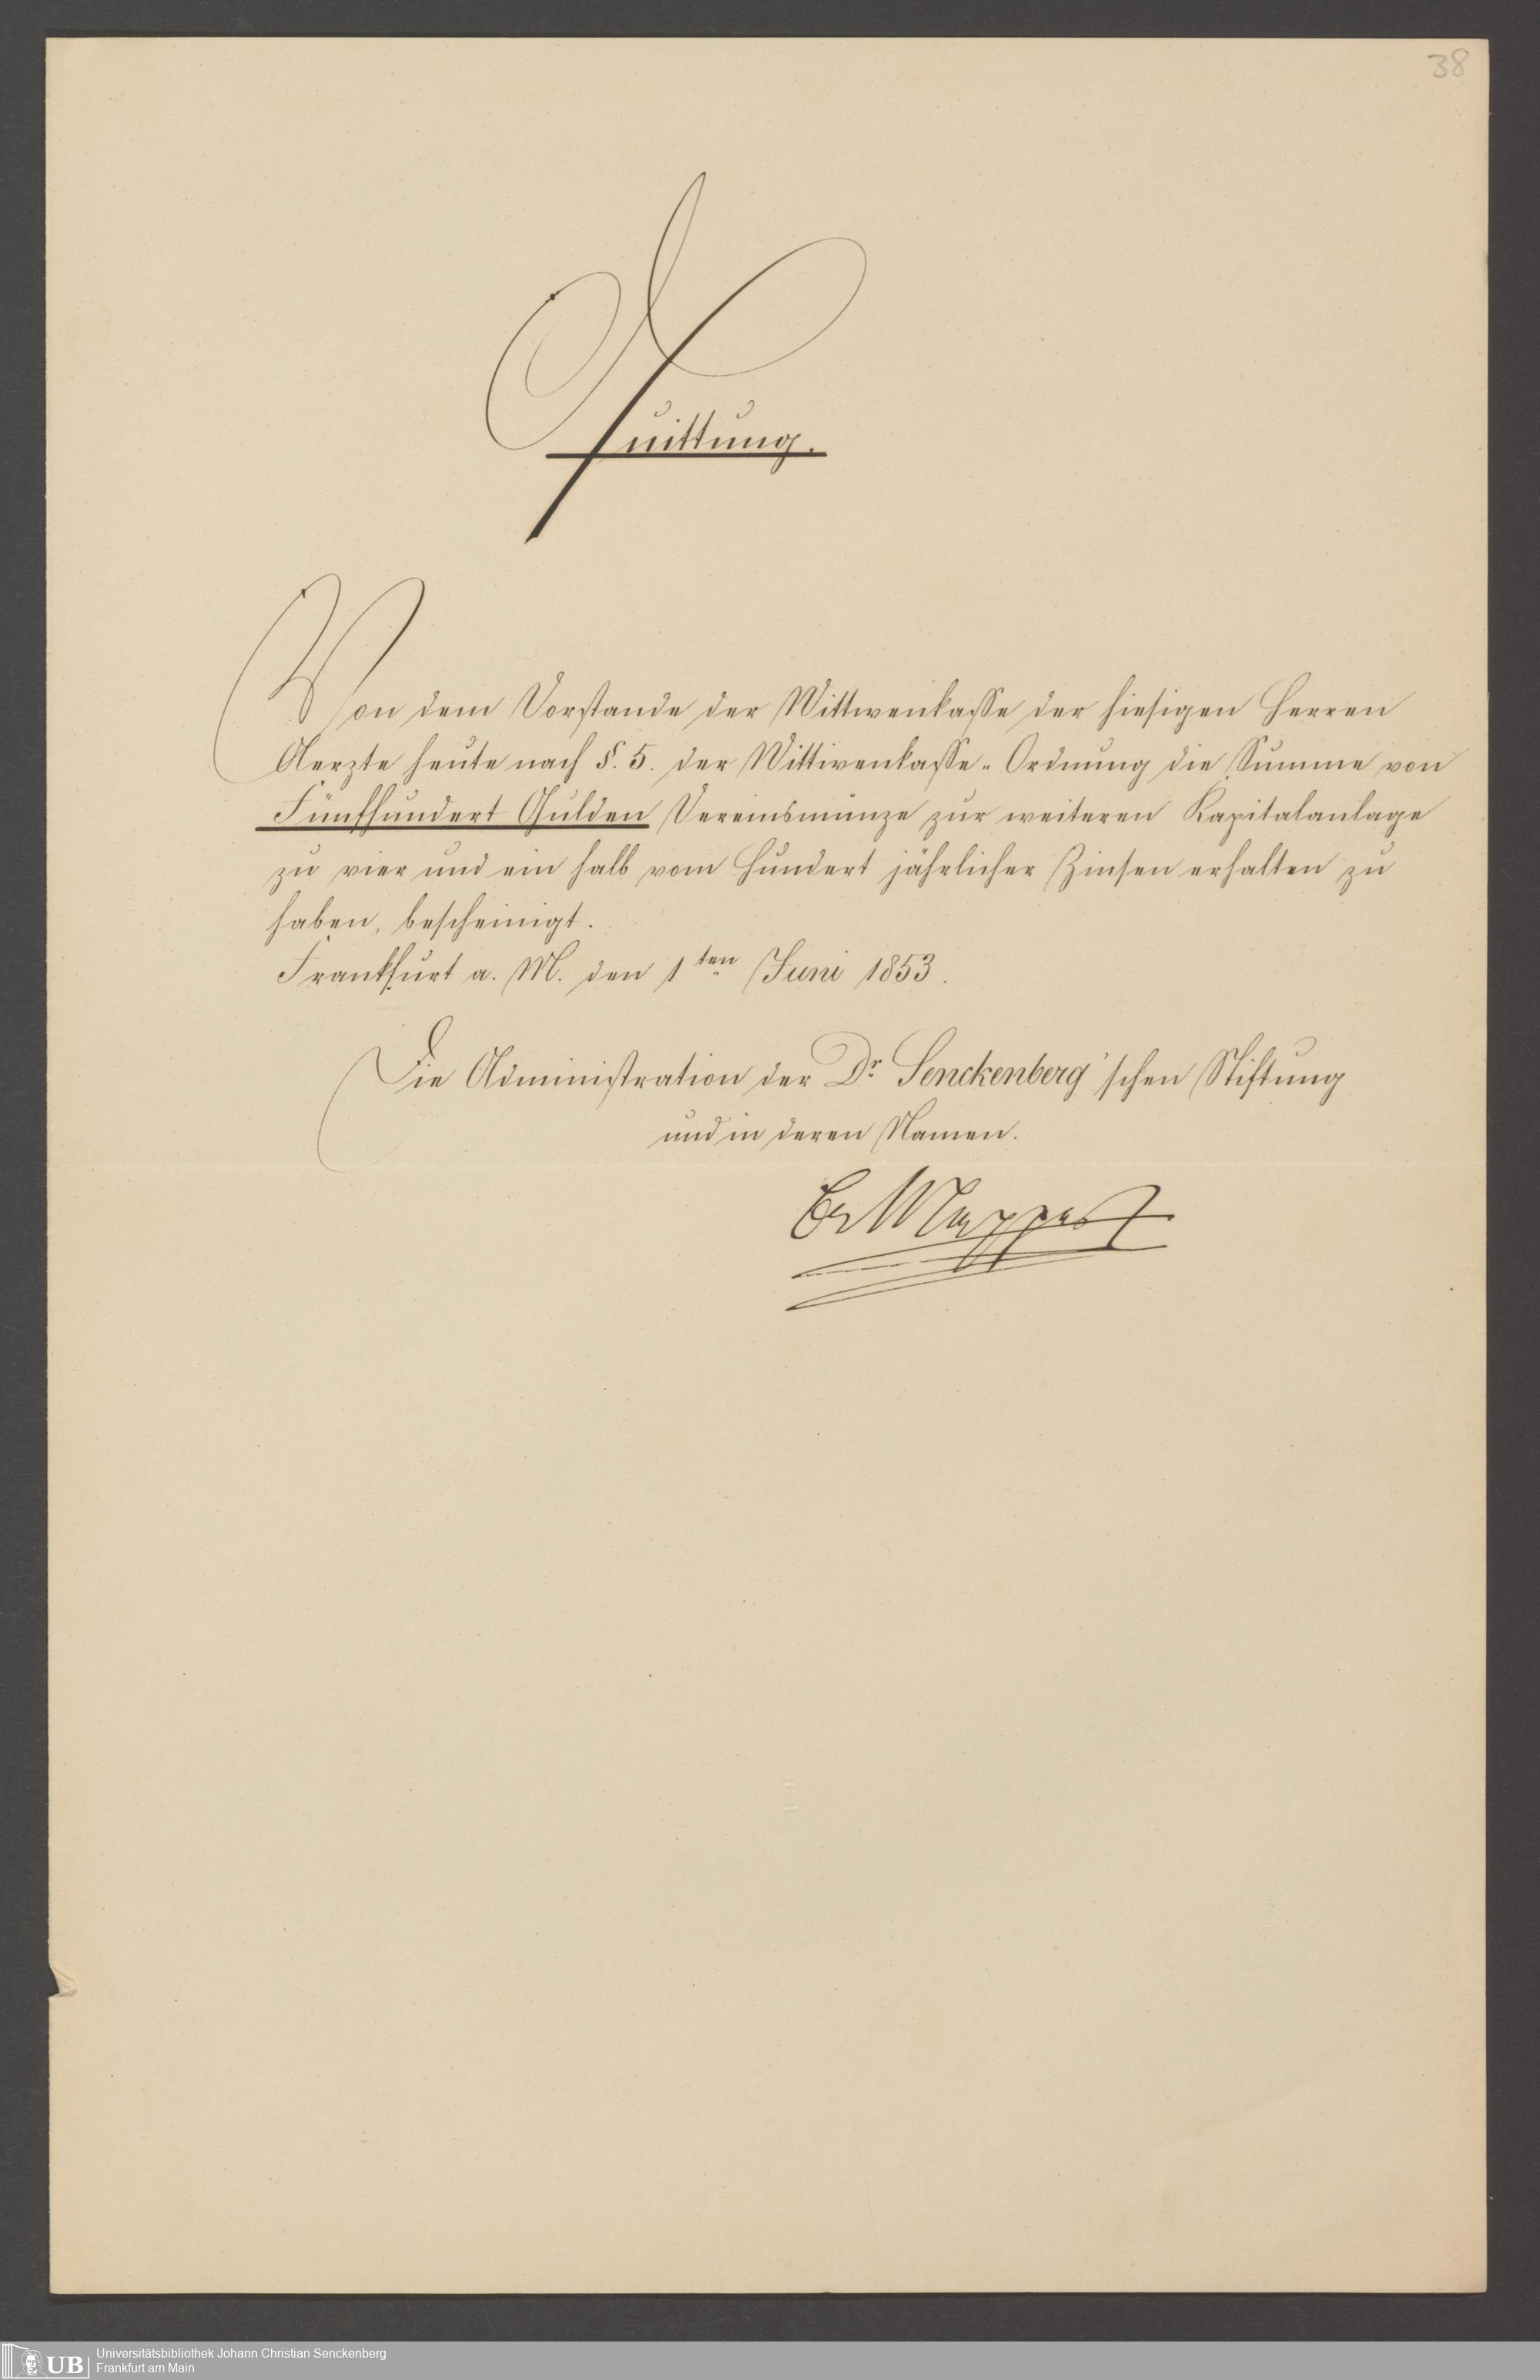 38
Quittung.
Von dem Vorstande der Wittwenkasse der hiesigen Herren
Aerzte heute nach §. 5. der Wittwenkasse-Ordnung die Summe von
Fünfhundert Gulden Vereinsmünze zur weiteren Kapitalanlage
zu vier und ein halb vom Hundert jährlicher Zinsen erhalten zu
haben, bescheinigt.
Frankfurt a. M. den 1ten Juni 1853.
Die Administration der Dr. Senckenberg'schen Stiftung
und in deren Namen.
Mappes
UB
Universitätsbibliothek Johann Christian Senckenberg
Frankfurt am Main